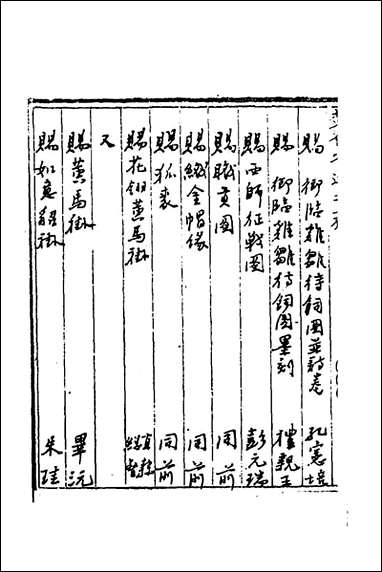 賜 御臨雛雞待飼圖並詩卷 孔憲培
賜 御臨雛雞待飼圖墨刻 禮親王
賜西師征戰圖 彭元瑞
賜職貢圖 同前
賜織金帽緣 同前
賜狐裘 同前
賜花翎黃馬褂 直隸總督
又
賜黃馬褂 畢沅
賜如意貂褂 朱珪